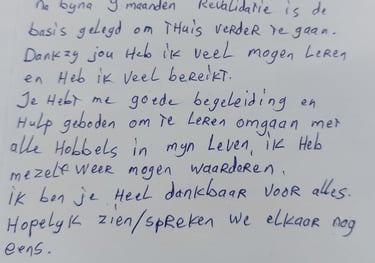 Na byna 9 maanden Revalidatie is de
basis gelegd om THuis verder te gaan.
Dankzy jou Heb ik veel mogen Leren
en Heb ik Veel bereikt.
Je Hebt me goede begeleiding en
Hulp geboden om Te Leren omgaan met
alle Hobbels in myn Leven, ik Heb
mezelf weer mogen waarderen.
ik ben je Heel dankbaar voor alles.
Hopelyk zien/spreken we elkaar nog
eens.